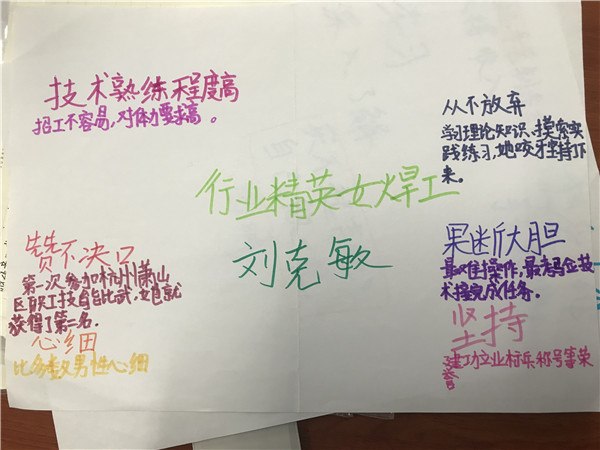 技术熟练程度高
招工不容易,对体力要求高。
从不放弃
学习理论知识、摸索实
践练习,她咬牙坚持下
来。
行业精英女焊工
刘克敏
赞不决口
第一次参加杭州萧山
区职工技能比武,她就
获得了第二名。
心细
比多数男性心细
果断大胆
最难操作,最高位技
术撞完成任务。
坚持
建功立业标兵称号等荣
誉